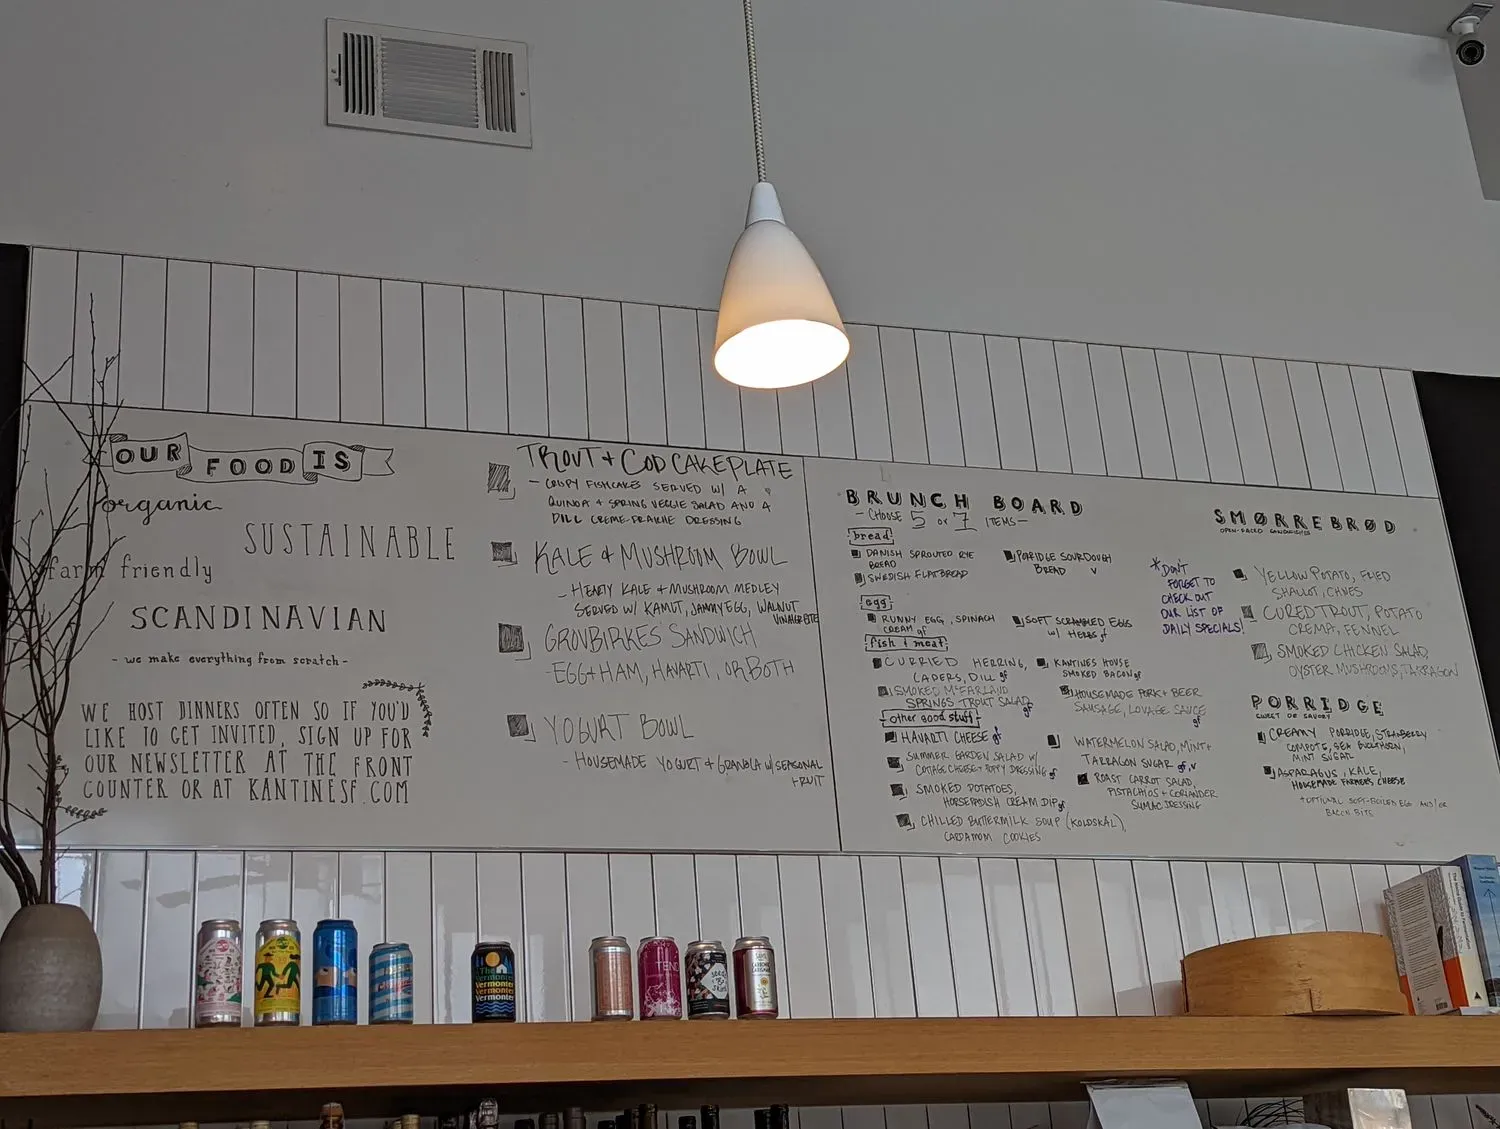 OUR FOOD IS
organic
SUSTAINABLE
farm friendly
SCANDINAVIAN
- we make everything from scratch -
WE HOST DINNERS OFTEN SO IF YOU'D
LIKE TO GET INVITED, SIGN UP FOR
OUR NEWSLETTER AT THE FRONT
COUNTER OR AT KANTINESF.COM
TROUT + COD CAKE PLATE
- CRISPY FISHCAKES SERVED W/ A
QUINOA + SPRING VEGGIE SALAD AND A
DILL CREME-FRAICHE DRESSING
KALE & MUSHROOM BOWL
- HEARTY KALE + MUSHROOM MEDLEY
SERVED W/ KAMUT, JAMMY EGG, WALNUT
VINAIGRETTE
GROVBIRKES SANDWICH
- EGG + HAM, HAVARTI, OR BOTH
YOGURT BOWL
- HOUSEMADE YOGURT + GRANOLA W/ SEASONAL
FRUIT
BRUNCH BOARD
- CHOOSE 5 OR 7 ITEMS -
bread
DANISH SPROUTED RYE
BREAD
SWEDISH FLATBREAD
PORRIDGE SOURDOUGH
BREAD V
egg
RUNNY EGG, SPINACH
CREAM gf
SOFT SCRAMBLED EGGS
W/ HERBS gf
fish + meat
CURRIED HERRING,
CAPERS, DILL gf
SMOKED McFARLAND
SPRINGS TROUT SALAD
gf
KANTINES HOUSE
SMOKED BACON gf
HOUSEMADE PORK + BEER
SAUSAGE, LOVAGE SAUCE
gf
other good stuff
HAVARTI CHEESE gf
SUMMER GARDEN SALAD W/
COTTAGE CHEESE + POPPY DRESSING gf
SMOKED POTATOES,
HORSERADISH CREAM DIP gf
CHILLED BUTTERMILK SOUP (KOLDSKÅL),
CARDAMOM COOKIES
WATERMELON SALAD, MINT +
TARRAGON SUGAR gf, v
ROAST CARROT SALAD,
PISTACHIOS + CORIANDER
SUMAC DRESSING
* DON'T
FORGET TO
CHECK OUT
OUR LIST OF
DAILY SPECIALS!
SMØRREBRØD
OPEN-FACED SANDWICHES
YELLOW POTATO, FRIED
SHALLOT, CHIVES
CURED TROUT, POTATO
CREMA, FENNEL
SMOKED CHICKEN SALAD,
OYSTER MUSHROOMS, TARRAGON
PORRIDGE
SWEET OR SAVORY
CREAMY PORRIDGE, STRAWBERRY
COMPOTE, SEA BUCKTHORN,
MINT SUGAR
ASPARAGUS, KALE,
HOUSEMADE FARMERS CHEESE
+ OPTIONAL SOFT-BOILED EGG AND/OR
BACON BITS
The
Vermonter
Vermonter
Vermonter
Vermonter